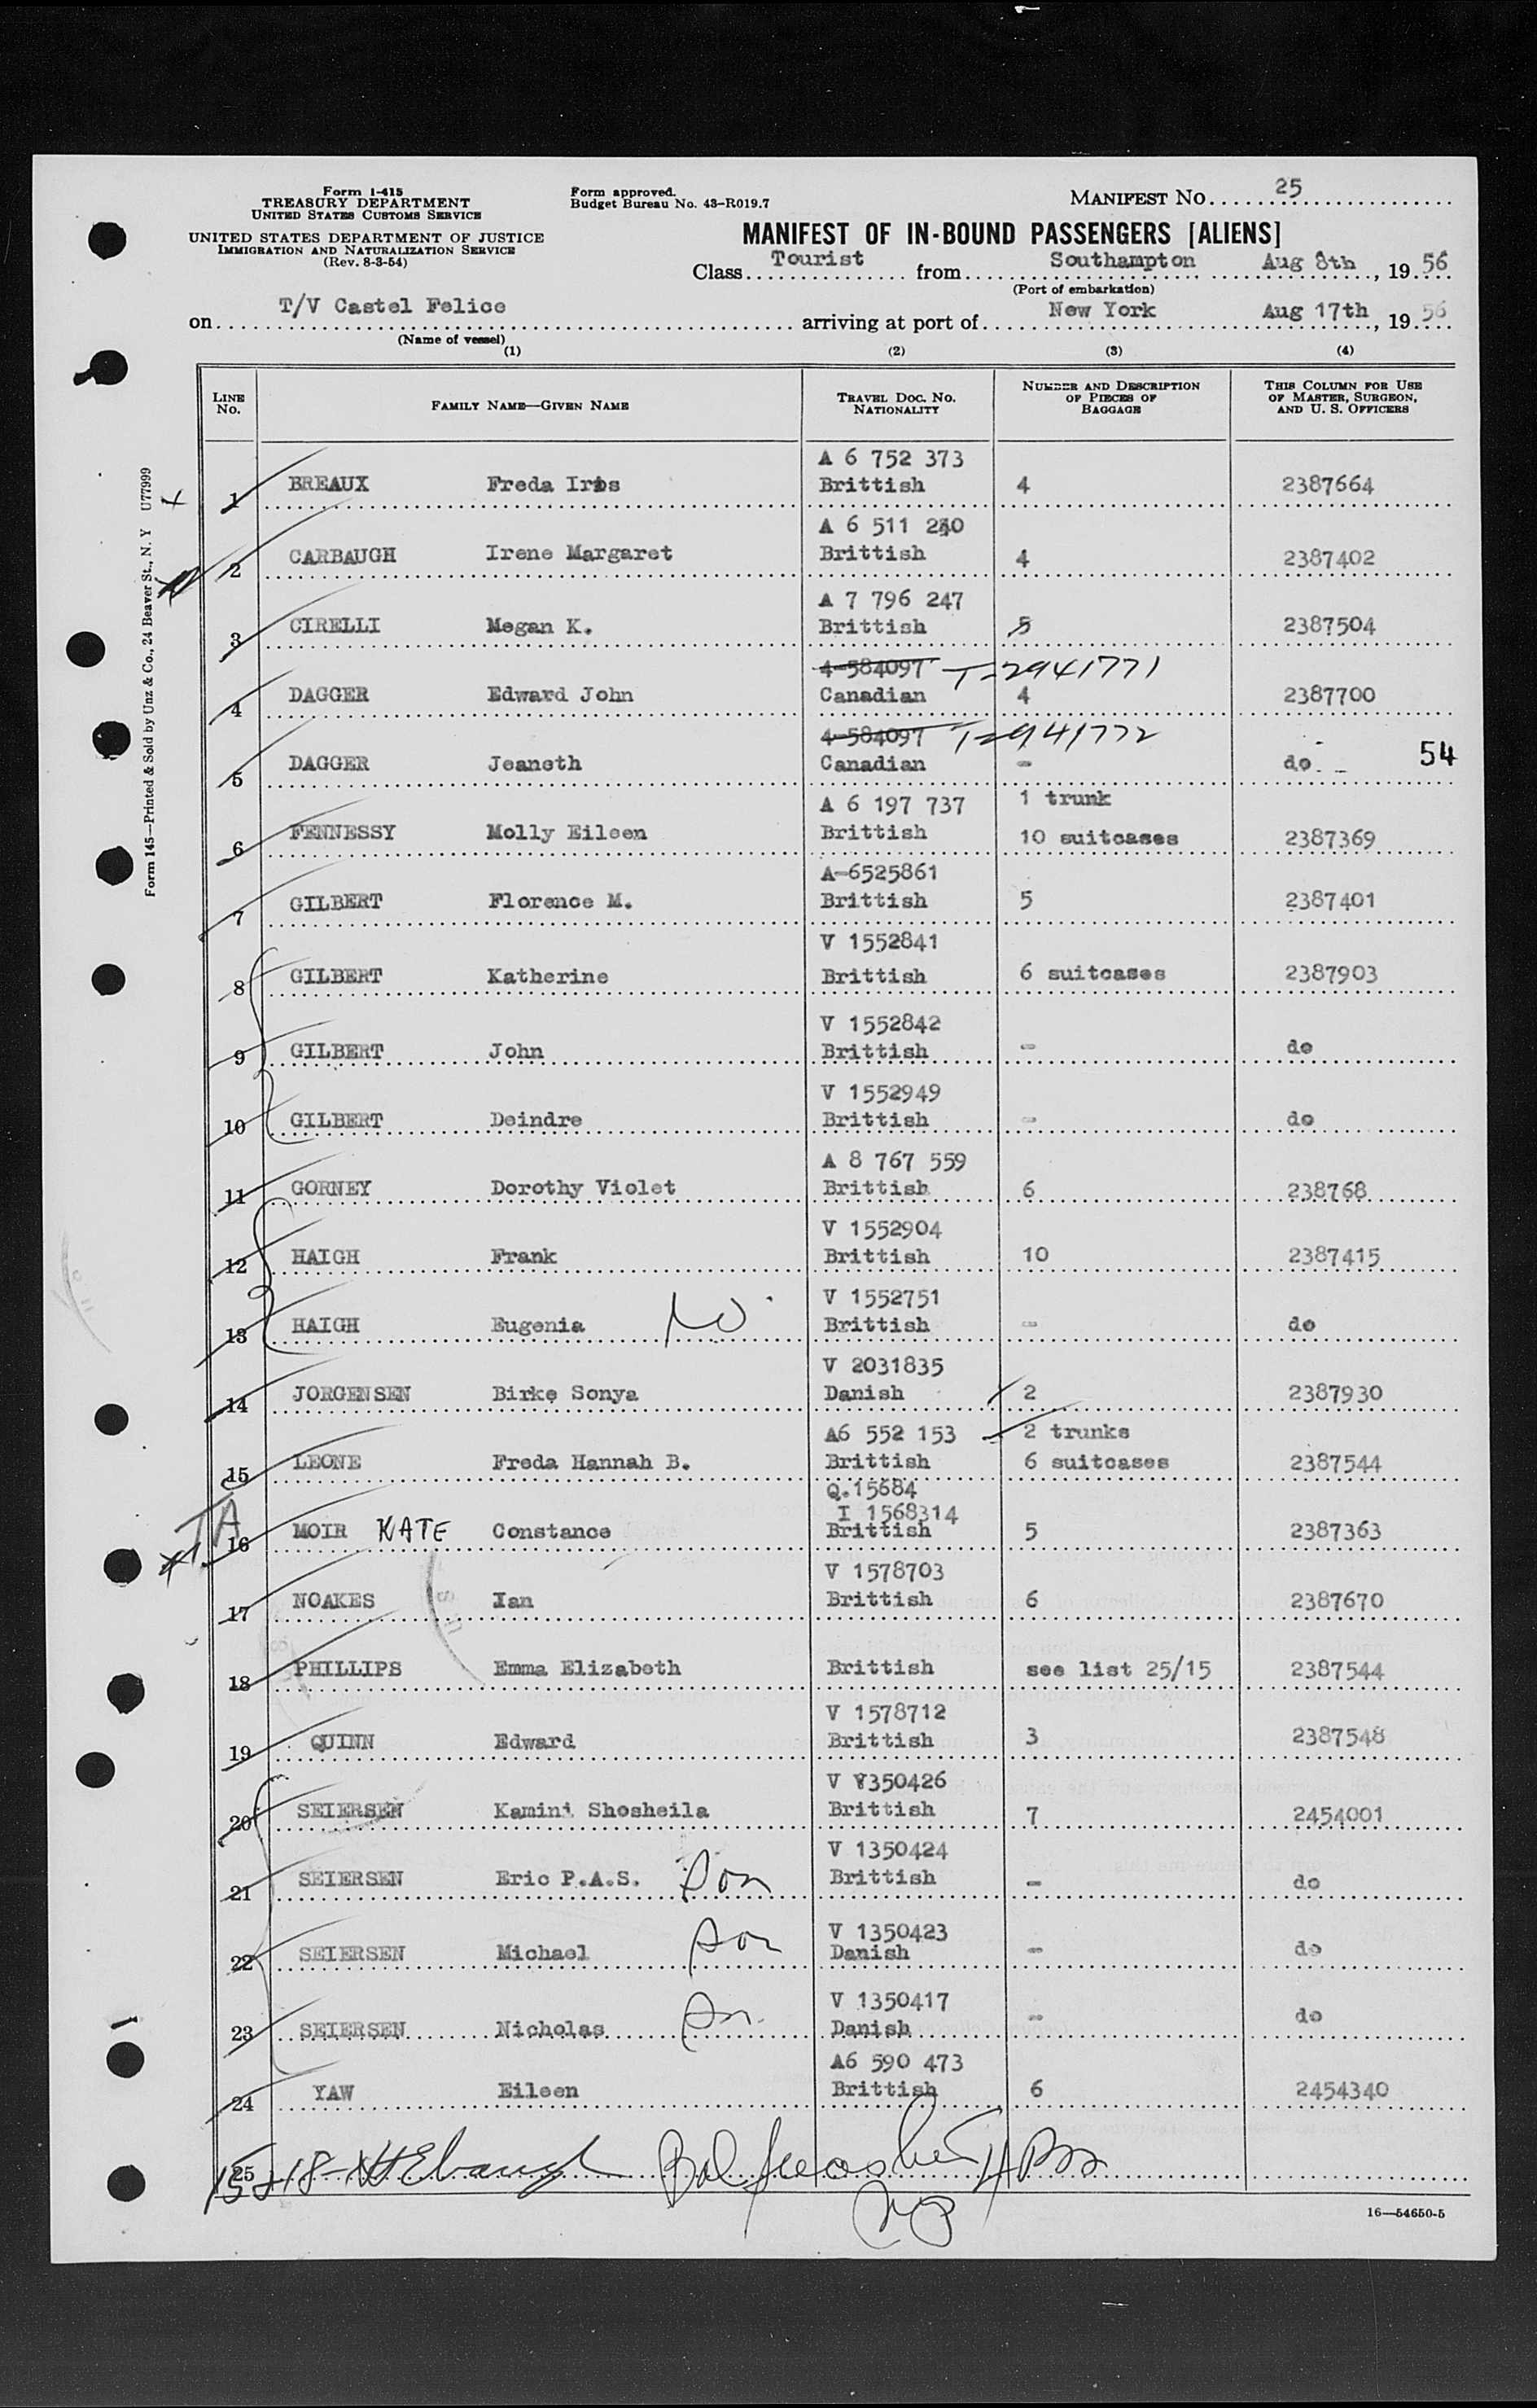 Form I-415
TREASURY DEPARTMENT
UNITED STATES CUSTOMS SERVICE
UNITED STATES DEPARTMENT OF JUSTICE
IMMIGRATION AND NATURALIZATION SERVICE
(Rev. 8-3-54)
Form approved.
Budget Bureau No. 43-R019.7
MANIFEST NO. 25
MANIFEST OF IN-BOUND PASSENGERS [ALIENS]
Class Tourist from Southampton Aug 8th, 19 56
(Port of embarkation)
on T/V Castel Felice arriving at port of New York Aug 17th, 19 56
(Name of vessel)
(1) (2) (3) (4)
LINE No. FAMILY NAME—GIVEN NAME TRAVEL DOC. NO. NATIONALITY NUMBER AND DESCRIPTION OF PIECES OF BAGGAGE THIS COLUMN FOR USE OF MASTER, SURGEON, AND U. S. OFFICERS
Form 145—Printed & Sold by Unz & Co., 24 Beaver St., N. Y U77999
A 6 752 373
1 BREAUX Freda Iris Brittish 4 2387664
A 6 511 240
2 CARBAUGH Irene Margaret Brittish 4 2387402
A 7 796 247
3 CIRELLI Megan K. Brittish 5 2387504
4-584097 T-2941771
4 DAGGER Edward John Canadian 4 2387700
4-584097 T-2941772
5 DAGGER Jeaneth Canadian - do 54
A 6 197 737 1 trunk
6 FENNESSY Molly Eileen Brittish 10 suitcases 2387369
A-6525861
7 GILBERT Florence M. Brittish 5 2387401
V 1552841
8 GILBERT Katherine Brittish 6 suitcases 2387903
V 1552842
9 GILBERT John Brittish - do
V 1552949
10 GILBERT Deindre Brittish - do
A 8 767 559
11 GORNEY Dorothy Violet Brittish 6 238768
V 1552904
12 HAIGH Frank Brittish 10 2387415
V 1552751
13 HAIGH Eugenia Brittish - do
V 2031835
14 JORGENSEN Birke Sonya Danish 2 2387930
A6 552 153 2 trunks
15 LEONE Freda Hannah B. Brittish 6 suitcases 2387544
Q.15684
I 1568314
16 MOIR KATE Constance Brittish 5 2387363
V 1578703
17 NOAKES Ian Brittish 6 2387670
18 PHILLIPS Emma Elizabeth Brittish see list 25/15 2387544
V 1578712
19 QUINN Edward Brittish 3 2387548
V 1350426
20 SEIERSEN Kamini Shosheila Brittish 7 2454001
V 1350424
21 SEIERSEN Eric P.A.S. Son Brittish - do
V 1350423
22 SEIERSEN Michael Son Danish - do
V 1350417
23 SEIERSEN Nicholas Son Danish - do
A6 590 473
24 YAW Eileen Brittish 6 2454340
25
16—54650-5